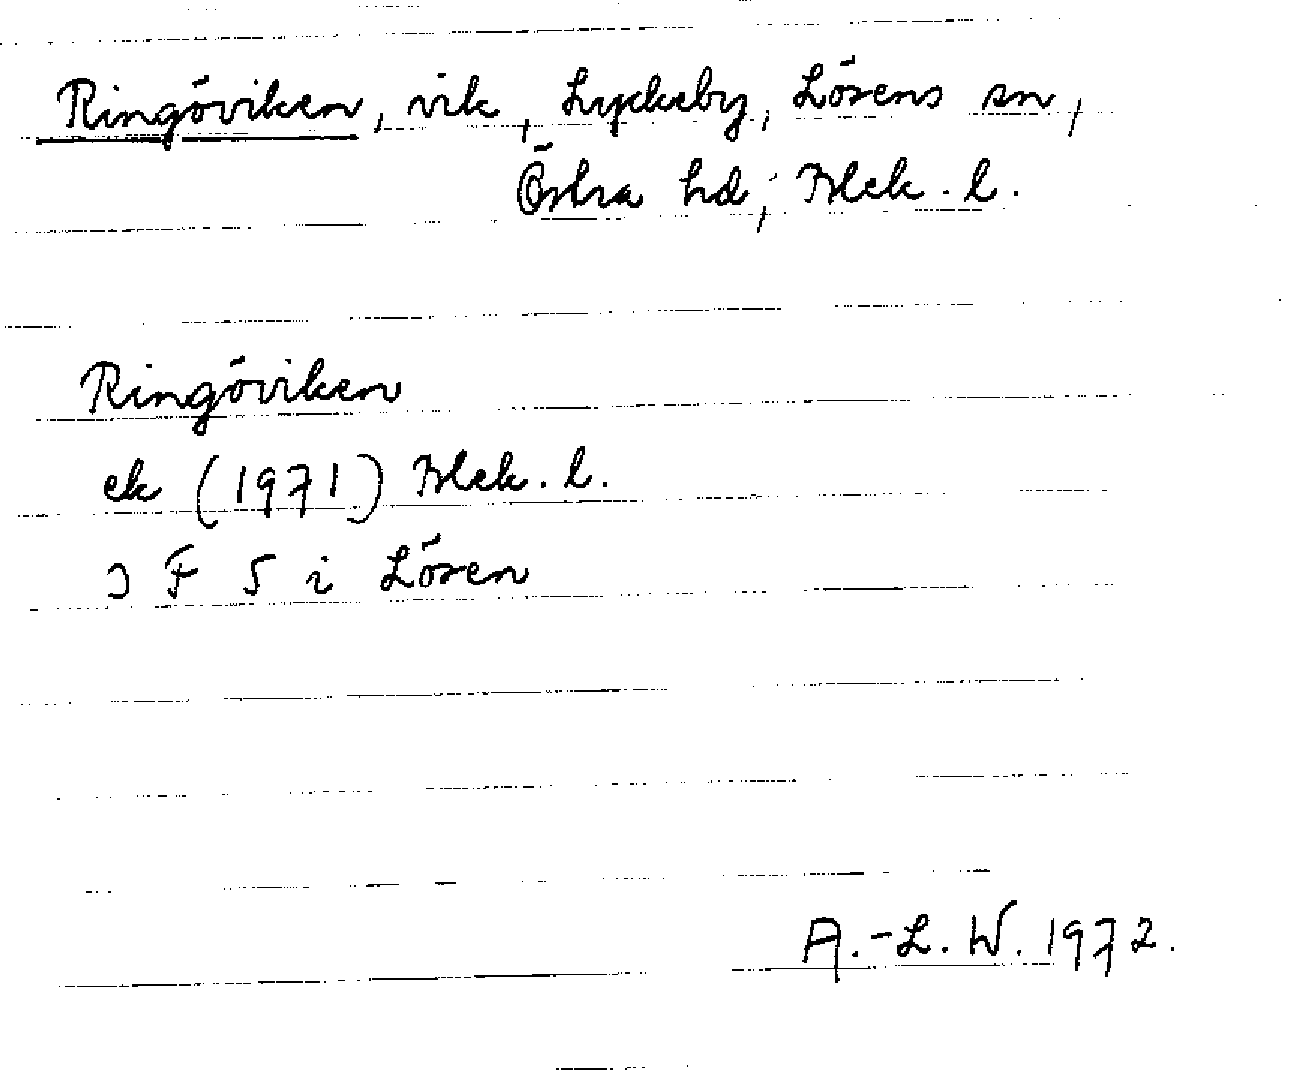 Ringöviken, vik, Lyckeby, Lösens sn,
Östra hd, Blek. l.
Ringöviken
ek (1971) Blek. l.
3 F 5 i Lösen
A.-L. W. 1972.